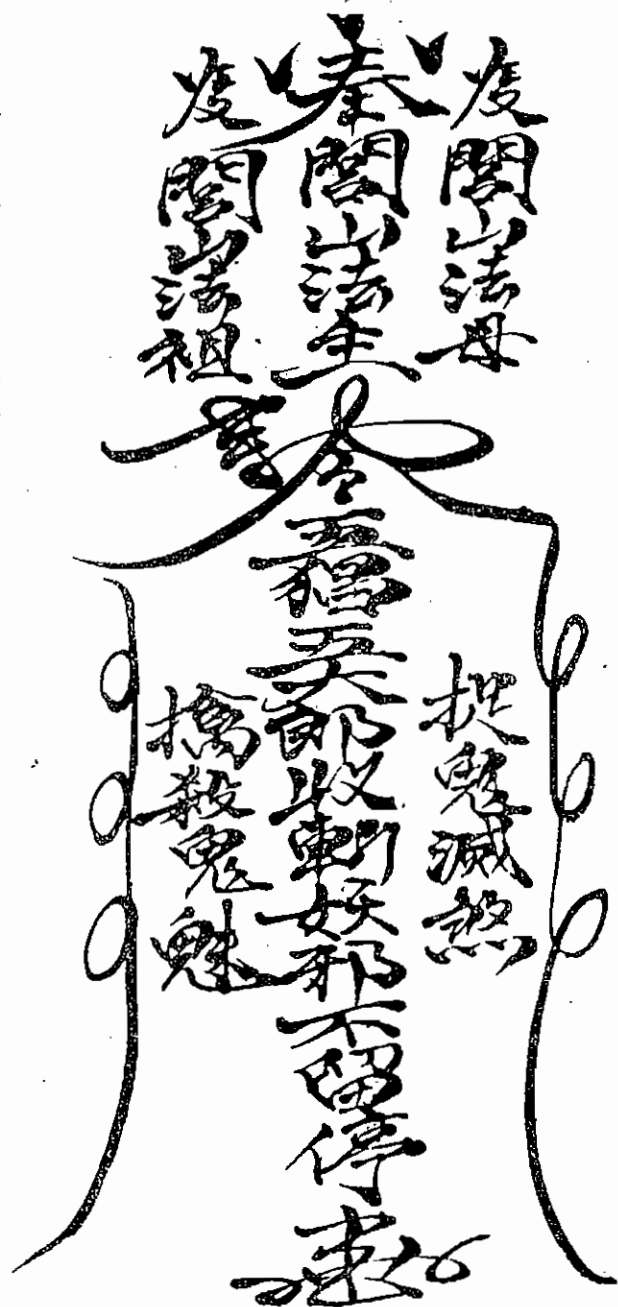 閭山法母
奉閭山法主
閭山法祖
令
捉鬼滅煞
五猖郎收斬妖邪不留停
擒殺鬼魅